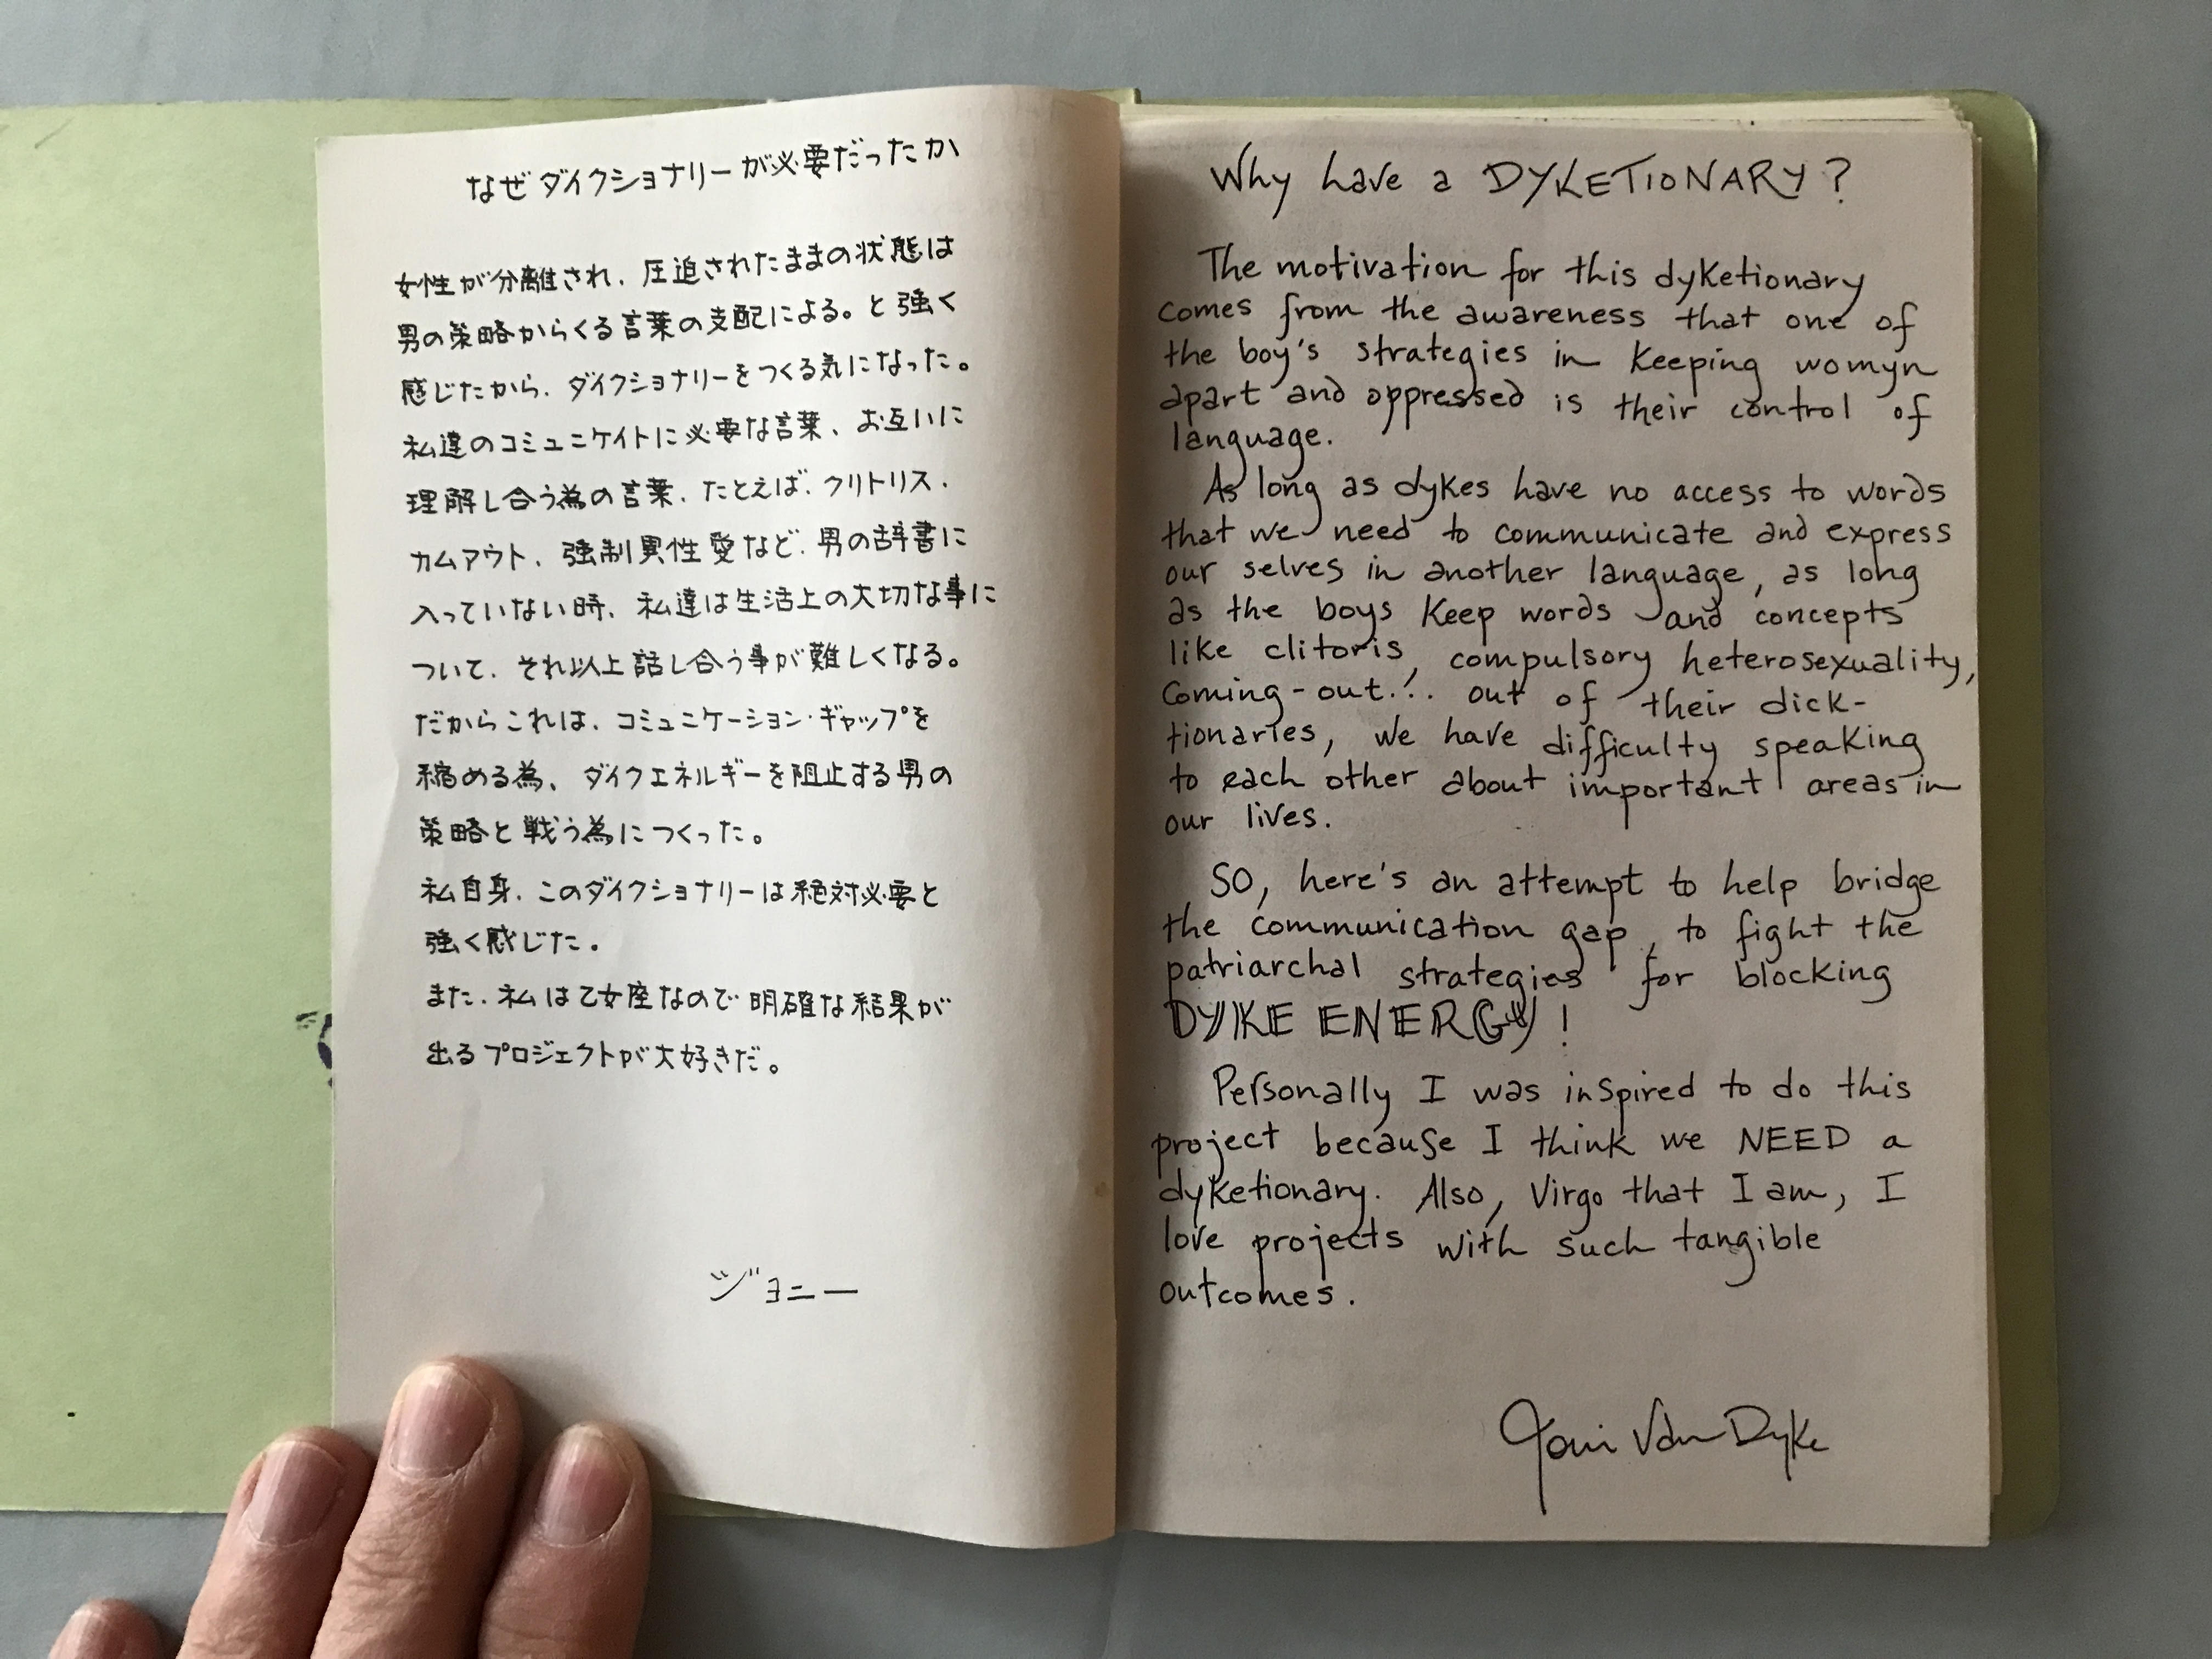 なぜダイクショナリーが必要だったか
女性が分離され、圧迫されたままの状態は
男の策略からくる言葉の支配による。と強く
感じたから、ダイクショナリーをつくる気になった。
私達のコミュニケイトに必要な言葉、お互いに
理解し合う為の言葉、たとえば、クリトリス、
カムアウト、強制異性愛など、男の辞書に
入っていない時、私達は生活上の大切な事に
ついて、それ以上話し合う事が難しくなる。
だからこれは、コミュニケーション・ギャップを
縮める為、ダイクエネルギーを阻止する男の
策略と戦う為につくった。
私自身、このダイクショナリーは絶対必要と
強く感じた。
また、私は乙女座なので明確な結果が
出るプロジェクトが大好きだ。
ジョニー
Why have a DYKETIONARY?
The motivation for this dyketionary
comes from the awareness that one of
the boy's strategies in keeping womyn
apart and oppressed is their control of
language.
As long as dykes have no access to words
that we need to communicate and express
our selves in another language, as long
as the boys keep words and concepts
like clitoris, compulsory heterosexuality,
coming-out... out of their dick-
tionaries, we have difficulty speaking
to each other about important areas in
our lives.
SO, here's an attempt to help bridge
the communication gap, to fight the
patriarchal strategies for blocking
DYKE ENERGY!
Personally I was inspired to do this
project because I think we NEED a
dyketionary. Also, Virgo that I am, I
love projects with such tangible
outcomes.
Joni Van Dyke